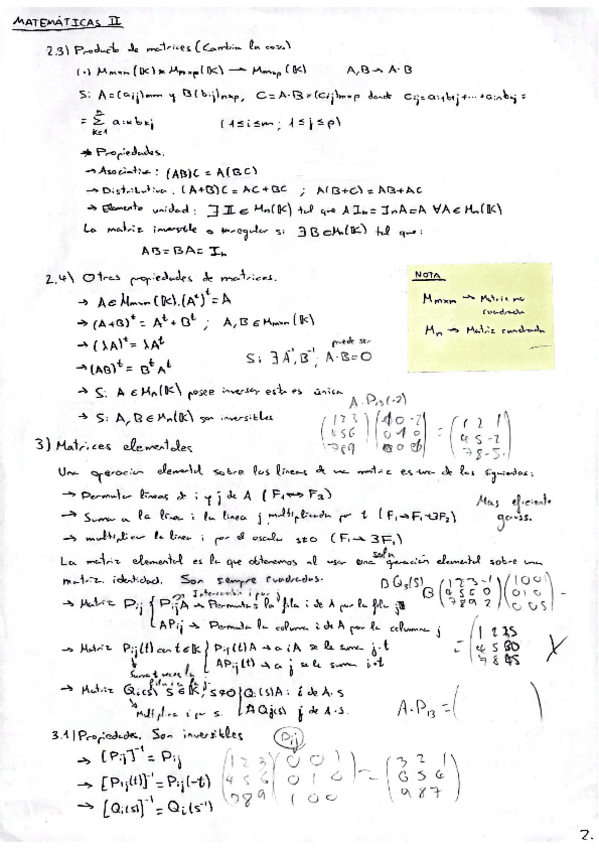 MATEMÁTICAS II
2.3) Producto de matrices (Cambia la cosa)
(·) Mmxn(K) x Mnxp(K) → Mmxp(K)   A,B → A·B
Si A=(aij)mxn y B(bij)nxp, C=A·B=(cij)mxp donde cij=ai1b1j+...+ainbnj=
= Σ aikbkj   (1≤i≤m; 1≤j≤p)
* Propiedades.
→ Asociativa: (AB)C = A(BC)
→ Distributiva. (A+B)C = AC+BC ; A(B+C) = AB+AC
→ Elemento unidad: ∃ I ∈ Mn(K) tal que A In = InA = A ∀A ∈ Mn(K)
La matriz inversible o regular si ∃B∈Mn(K) tal que:
AB=BA=In
2.4) Otras propiedades de matrices.
→ A∈Mmxn(K), (A^t)^t = A
→ (A+B)^t = A^t + B^t ; A,B∈Mmxn(K)
→ (λA)^t = λA^t
→ (AB)^t = B^t A^t
puede ser
Si ∃ A^-1, B^-1, A·B=0
NOTA
Mmxn → Matriz no
cuadrada
Mn → Matriz cuadrada
→ Si A∈Mn(K) posee inversa esta es única
→ Si A,B∈Mn(K) son inversibles
A·P13(-2)
(1 2 3) (1 0 -2) (1 2 1)
(4 5 6) (0 1 0) = (4 5 -2)
(7 8 9) (0 0 1) (7 8 -5)
3) Matrices elementales
Una operación elemental sobre las líneas de una matriz es una de las siguientes:
→ Permutar líneas i y j de A (F1↔F2)
→ Suma a la línea i la línea j multiplicada por t (F1→F1+3F2)
→ multiplicar la línea i por el escalar s≠0 (F1→3F1)
Mas eficiente
gauss.
La matriz elemental es la que obtenemos al usar una sola operación elemental sobre una
matriz identidad. Son siempre cuadradas.
Intercambia i por j
→ Matriz Pij { PijA → Permuta la fila i de A por la fila j
APij → Permuta la columna i de A por la columna j
→ Matriz Pij(t) con t∈K { Pij(t)A → a iA se le suma j·t
APij(t) → a j se le suma i·t
Suma t veces la
→ Matriz Qi(s) s∈K, s≠0 { Qi(s)A: i de A·s
AQj(s) j de A·s.
Multiplica i por s.
B Q3(5)
B (1 2 3 -1) (1 0 0)
(4 5 6 0) (0 1 0) =
(7 8 9 2) (0 0 5)
= (1 2 15)
(4 5 30)
(7 8 45)
A·P13 = ( )
3.1) Propiedades. Son inversibles
→ [Pij]^-1 = Pij
→ [Pij(t)]^-1 = Pij(-t)
→ [Qi(s)]^-1 = Qi(s^-1)
Pij
(1 2 3) (0 0 1) (3 2 1)
(4 5 6) (0 1 0) = (6 5 4)
(7 8 9) (1 0 0) (9 8 7)
2.